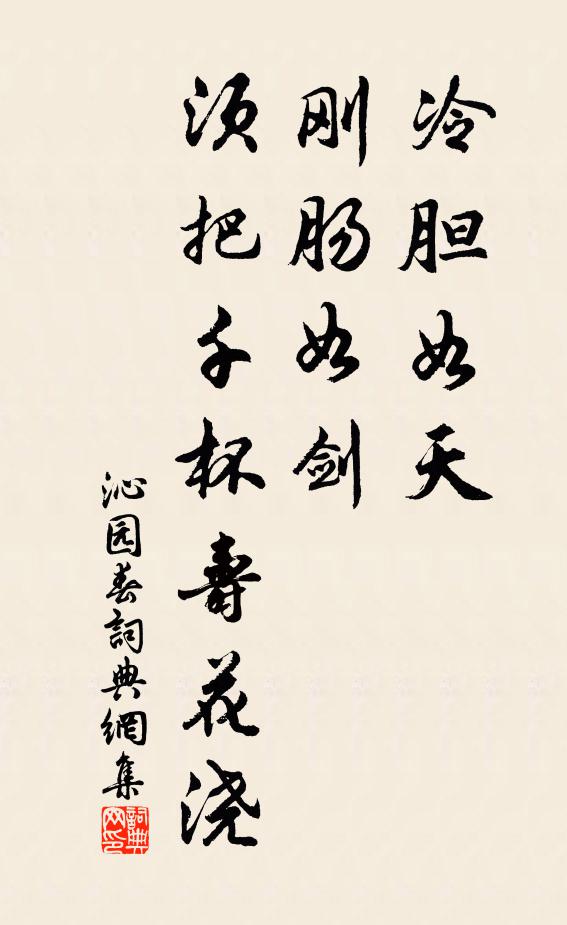 冷胆如天
刚肠如剑
须把千杯寿花浇
沁园春詞典網集
詞典网印